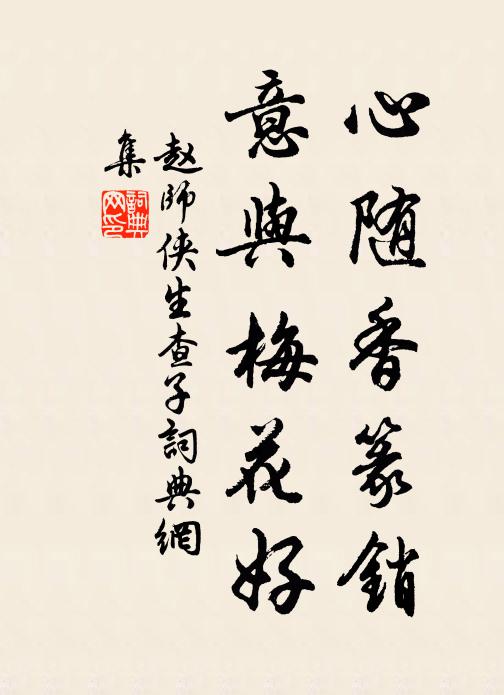 心随香篆銷
意與梅花好
赵師侠生查子詞典網
集
詞典
网印